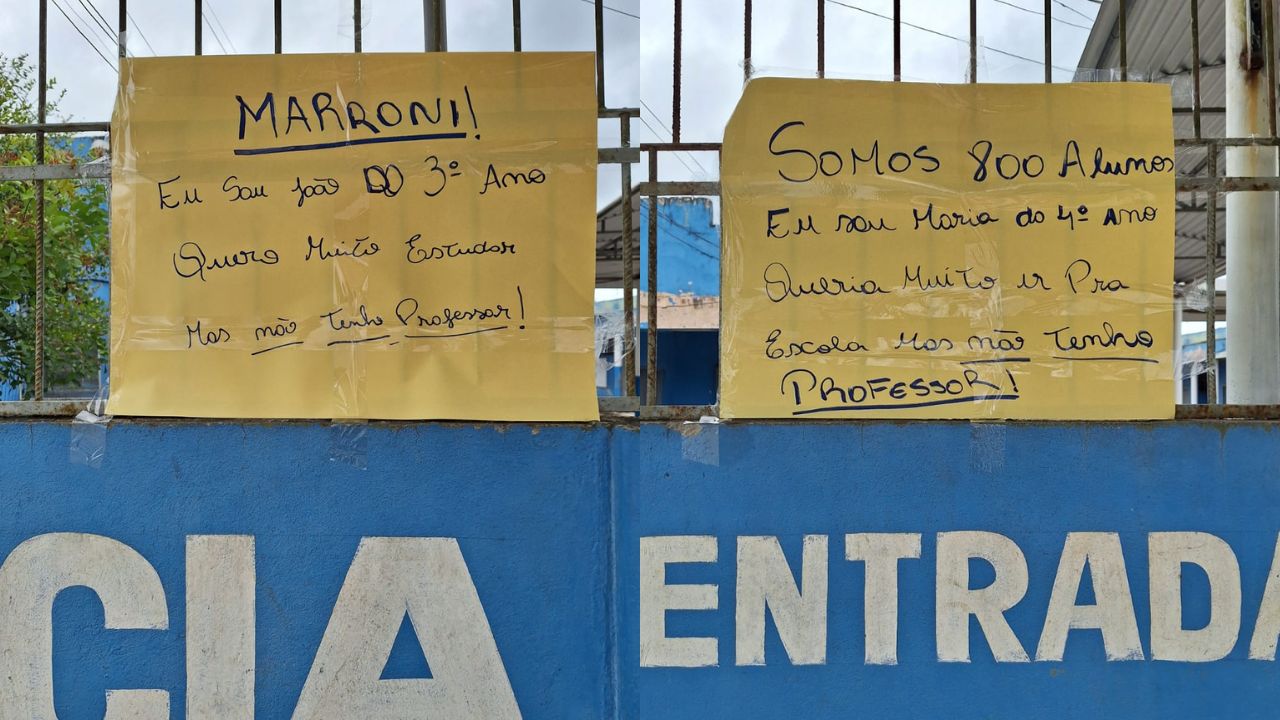 MARRONI!
Eu Sou João DO 3º Ano
Quero Muito Estudar
Mas não Tenho Professor!
SOMOS 800 Alunos
Eu sou Maria do 4º Ano
Queria Muito ir Pra
Escola Mas não Tenho
PROFESSOR!
CIA
ENTRADA